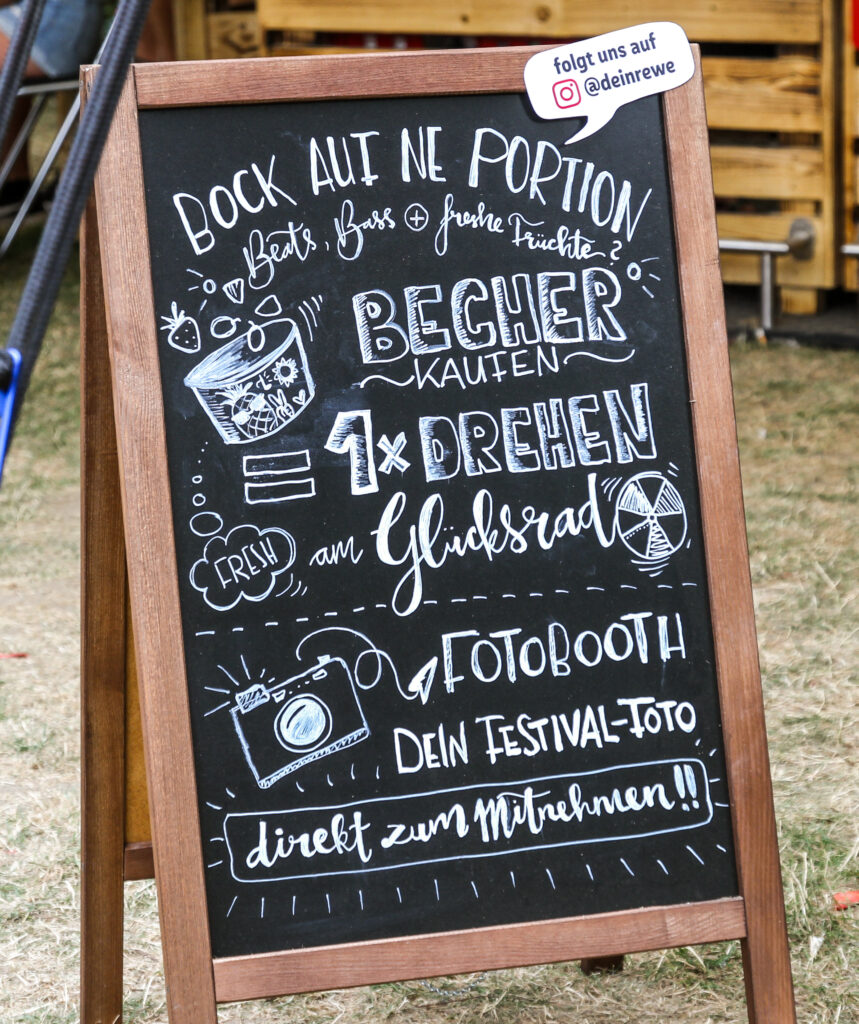 folgt uns auf
@deinrewe
BOCK AUF NE PORTION
Beats, Bass + freshe Früchte?
BECHER
KAUFEN
= 1x DREHEN
FRESH
am Glücksrad
FOTOBOOTH
DEIN FESTIVAL-FOTO
direkt zum Mitnehmen!!